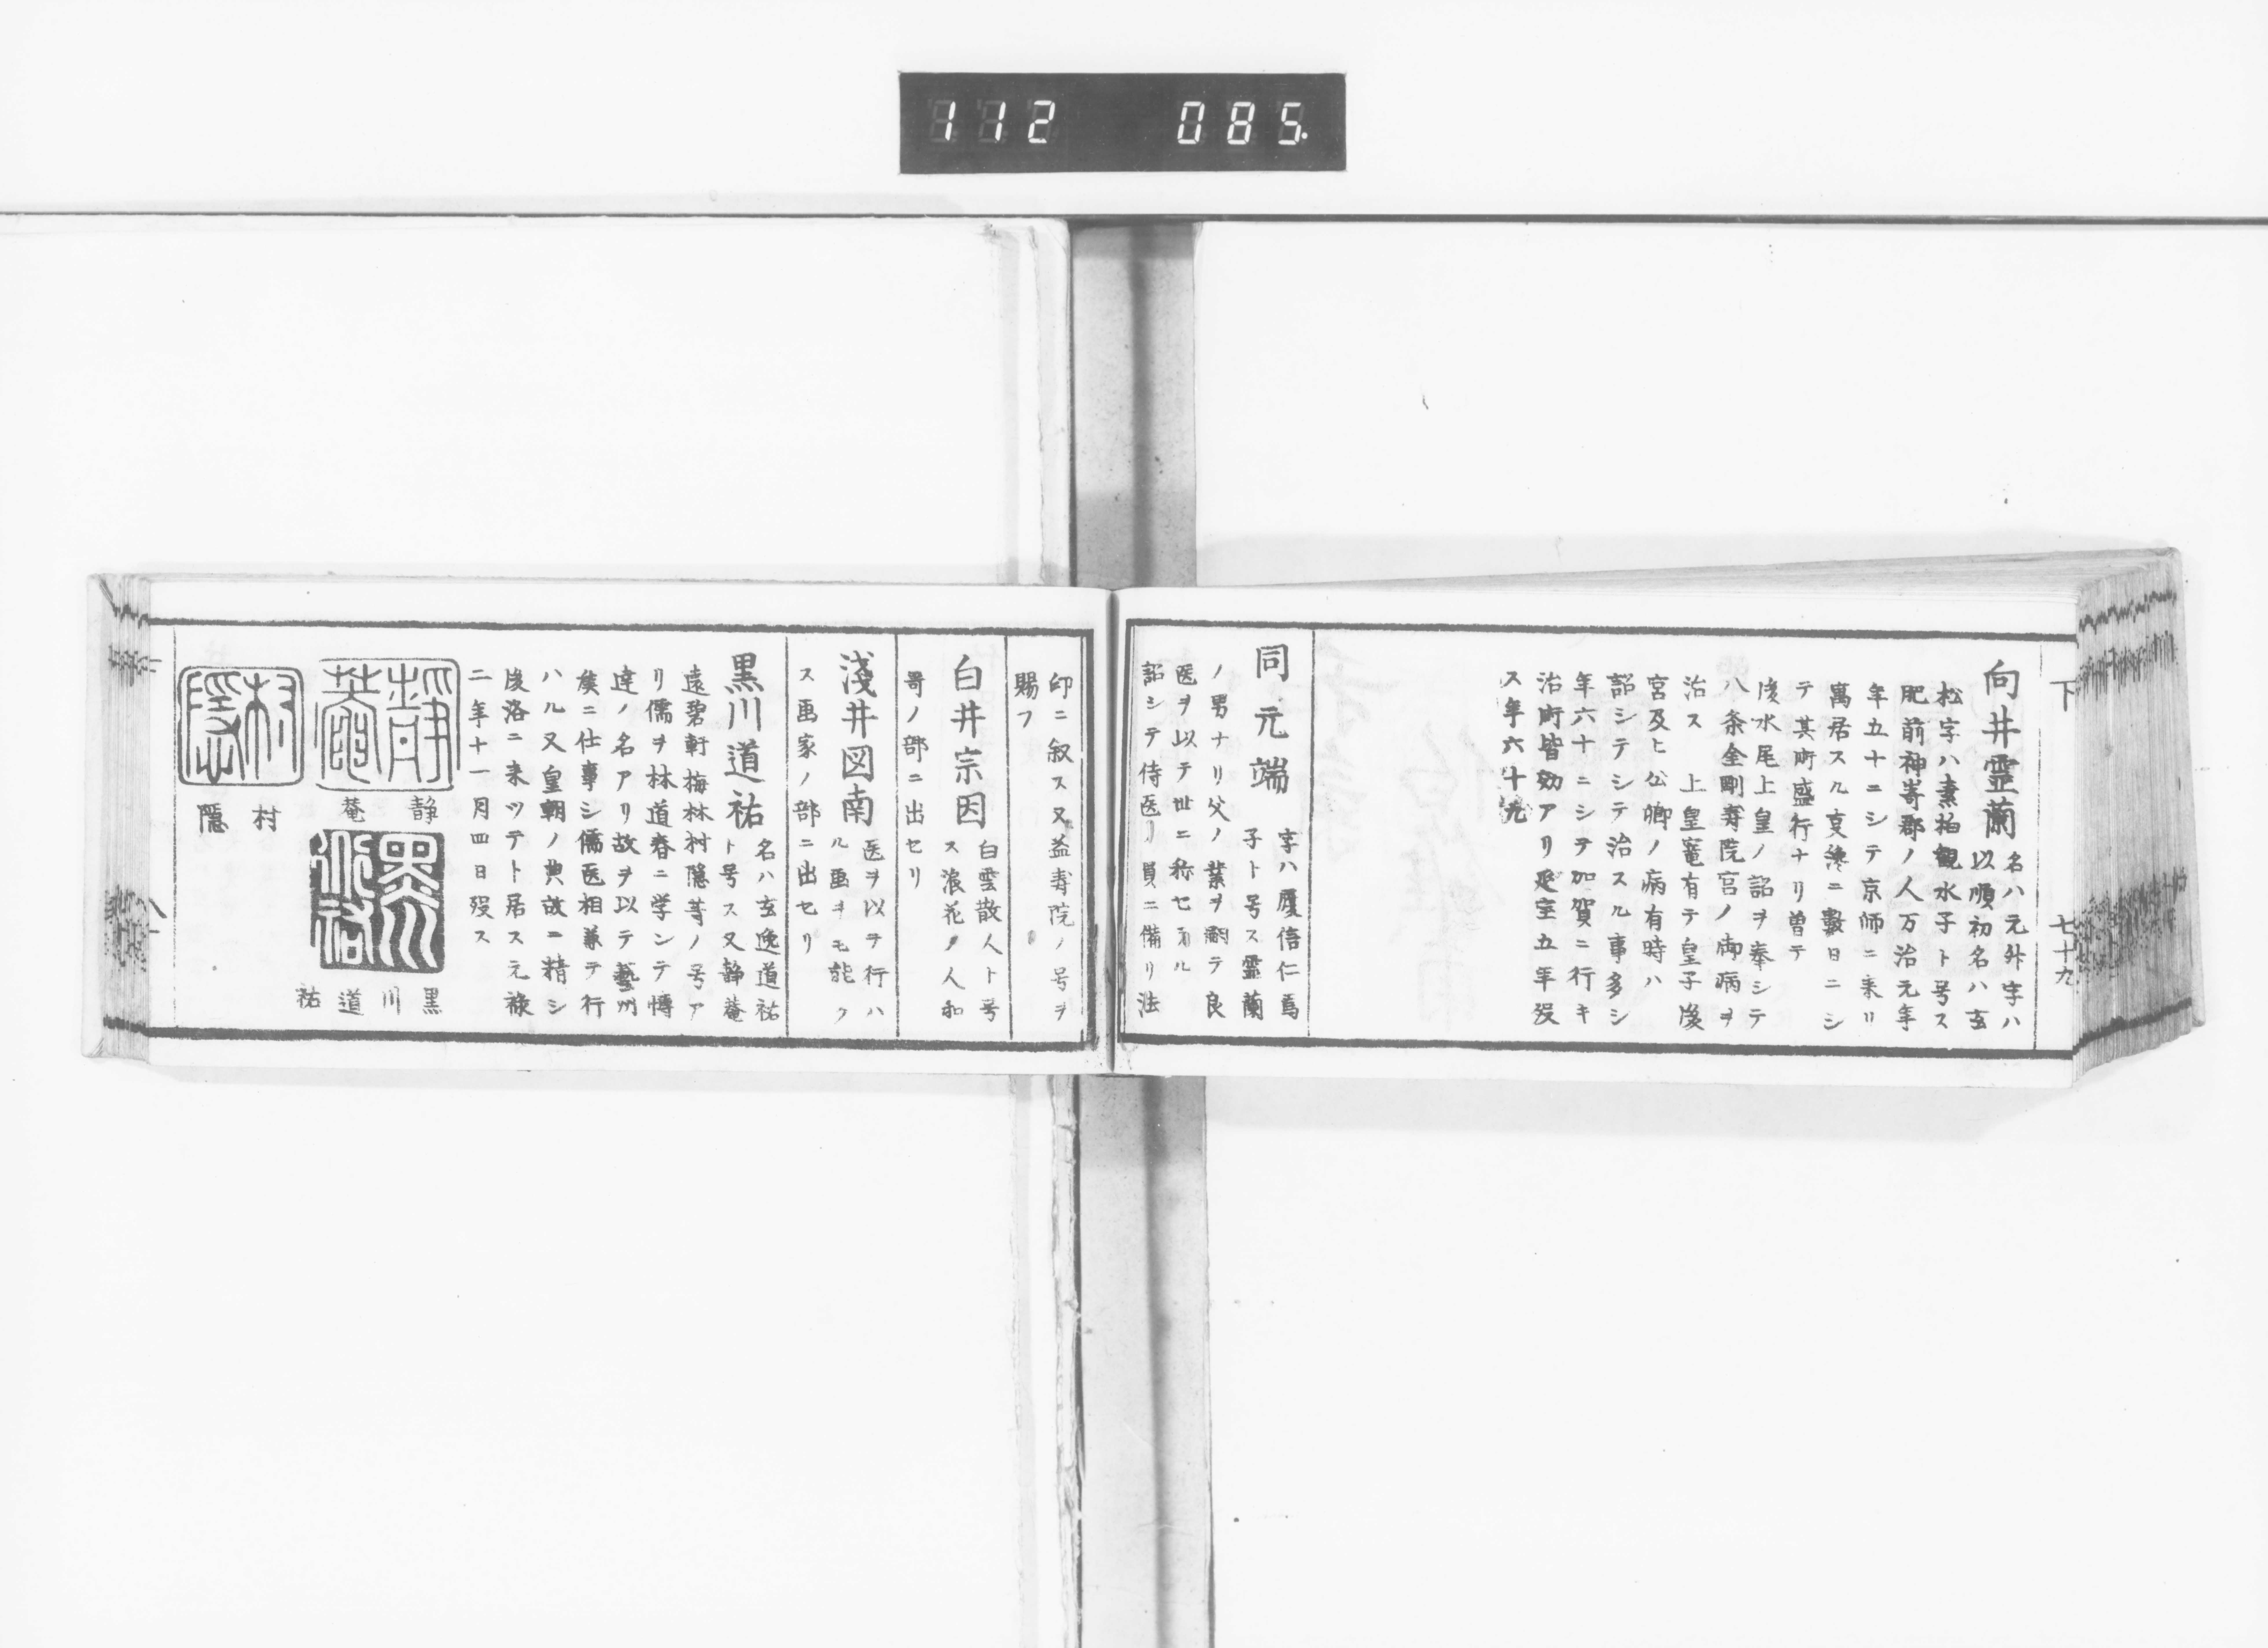 112 085.
下
七十九
向井霊蘭
名ハ元升字ハ
以順初名ハ玄
松字ハ素柏観水子ト号ス
肥前神嵜郡ノ人万治元年
年五十ニシテ京師ニ来リ
寓居スル夏纔ニ數日ニシ
テ其術盛行ナリ曽テ
後水尾上皇ノ詔ヲ奉シテ
八条金剛寿院宮ノ御病ヲ
治ス 上皇竉有テ皇子後
宮及ヒ公卿ノ病有時ハ
詔シテシテ治スル事多シ
年六十ニシテ加賀ニ行キ
治術皆効アリ延宝五年歿
ス年六十九
同元端
字ハ履信仁焉
子ト号ス霊蘭
ノ男ナリ父ノ業ヲ嗣テ良
医ヲ以テ世ニ称セラル
詔シテ侍医ノ員ニ備リ法
印ニ叙ス又益寿院ノ号ヲ
賜フ
白井宗因
白雲散人ト号
ス浪花ノ人和
哥ノ部ニ出セリ
淺井図南
医ヲ以テ行ハ
ル画ヲモ能ク
ス画家ノ部ニ出セリ
黒川道祐
名ハ玄逸道祐
ト号ス又静菴
遠碧軒梅林村隠等ノ号ア
リ儒ヲ林道春ニ学ンテ博
達ノ名アリ故ヲ以テ藝州
矦ニ仕事シ儒医相兼テ行
ハル又皇朝ノ典故ニ精シ
後洛ニ来ツテト居ス元禄
二年十一月四日歿ス
靜菴
静菴
黒川道祐
黒川道祐
村隠
村隠